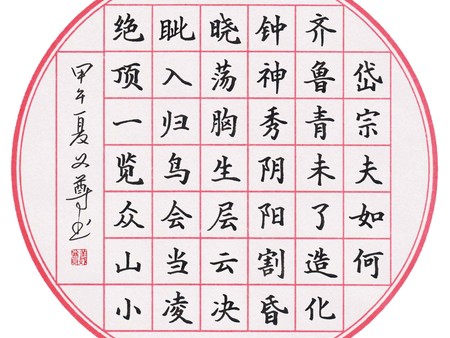 岱宗夫如何
齐鲁青未了造化
钟神秀阴阳割昏
晓荡胸生层云决
眦入归鸟会当凌
绝顶一览众山小
甲午夏尊书